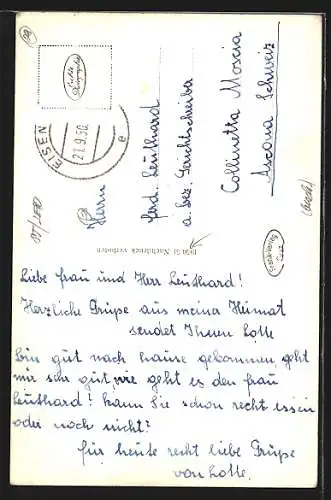 Liebe Frau und Herr Leuthard!
Herzliche Grüpe aus meina Heimat
sendet Ihnen Lotte
Bin gut nach hause gekommen geht
mir sehr gut, wie geht es den frau
Leuthard! kann Sie schon recht essen
oder noch nicht?
für heute recht liebe Grüpe
von Lotte.
Herrn
Ferd. Leuthard
a. Bez. Gerichtschreiber
Collinetta Moscia
Ascona Schweiz
EISEN
21.9.50.
e
Nachdruck verboten